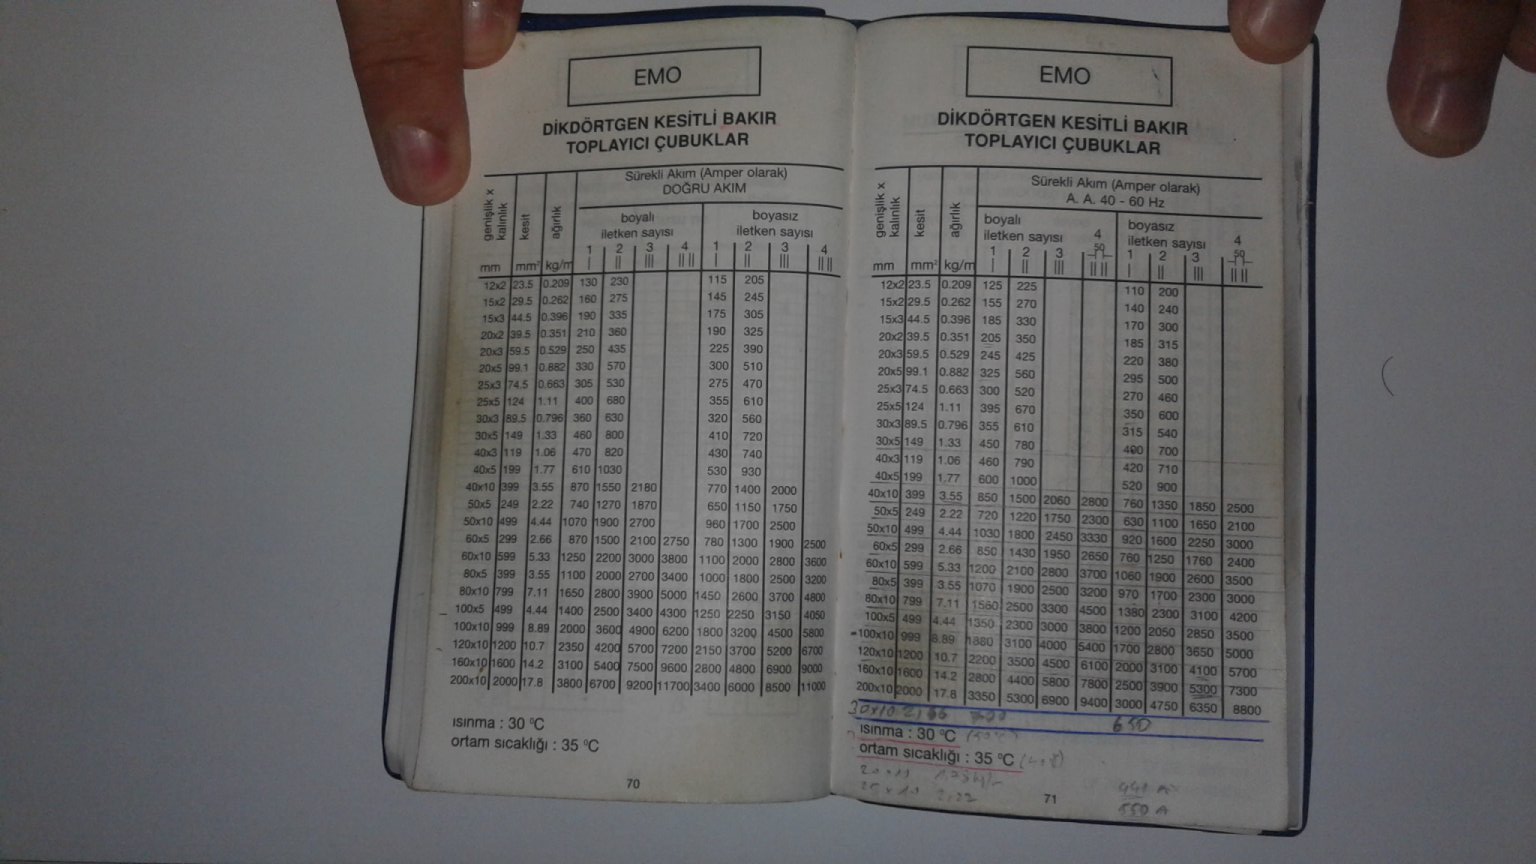 EMO
DİKDÖRTGEN KESİTLİ BAKIR
TOPLAYICI ÇUBUKLAR
genişlik x kalınlık kesit ağırlık Sürekli Akım (Amper olarak)
DOĞRU AKIM
boyalı boyasız
iletken sayısı iletken sayısı
1 2 3 4 1 2 3 4
mm mm² kg/m
12x2 23.5 0.209 130 230 115 205
15x2 29.5 0.262 160 275 145 245
15x3 44.5 0.396 190 335 175 305
20x2 39.5 0.351 210 360 190 325
20x3 59.5 0.529 250 435 225 390
20x5 99.1 0.882 330 570 300 510
25x3 74.5 0.663 305 530 275 470
25x5 124 1.11 400 680 355 610
30x3 89.5 0.796 360 630 320 560
30x5 149 1.33 460 800 410 720
40x3 119 1.06 470 820 430 740
40x5 199 1.77 610 1030 530 930
40x10 399 3.55 870 1550 2180 770 1400 2000
50x5 249 2.22 740 1270 1870 650 1150 1750
50x10 499 4.44 1070 1900 2700 960 1700 2500
60x5 299 2.66 870 1500 2100 2750 780 1300 1900 2500
60x10 599 5.33 1250 2200 3000 3800 1100 2000 2800 3600
80x5 399 3.55 1100 2000 2700 3400 1000 1800 2500 3200
80x10 799 7.11 1650 2800 3900 5000 1450 2600 3700 4800
100x5 499 4.44 1400 2500 3400 4300 1250 2250 3150 4050
100x10 999 8.89 2000 3600 4900 6200 1800 3200 4500 5800
120x10 1200 10.7 2350 4200 5700 7200 2150 3700 5200 6700
160x10 1600 14.2 3100 5400 7500 9600 2800 4800 6900 9000
200x10 2000 17.8 3800 6700 9200 11700 3400 6000 8500 11000
ısınma : 30 ºC
ortam sıcaklığı : 35 ºC
70
EMO
DİKDÖRTGEN KESİTLİ BAKIR
TOPLAYICI ÇUBUKLAR
genişlik x kalınlık kesit ağırlık Sürekli Akım (Amper olarak)
A. A. 40 - 60 Hz
boyalı boyasız
iletken sayısı 4 iletken sayısı 4
1 2 3 50 1 2 3 50
mm mm² kg/m
12x2 23.5 0.209 125 225 110 200
15x2 29.5 0.262 155 270 140 240
15x3 44.5 0.396 185 330 170 300
20x2 39.5 0.351 205 350 185 315
20x3 59.5 0.529 245 425 220 380
20x5 99.1 0.882 325 560 295 500
25x3 74.5 0.663 300 520 270 460
25x5 124 1.11 395 670 350 600
30x3 89.5 0.796 355 610 315 540
30x5 149 1.33 450 780 400 700
40x3 119 1.06 460 790 420 710
40x5 199 1.77 600 1000 520 900
40x10 399 3.55 850 1500 2060 2800 760 1350 1850 2500
50x5 249 2.22 720 1220 1750 2300 630 1100 1650 2100
50x10 499 4.44 1030 1800 2450 3330 920 1600 2250 3000
60x5 299 2.66 850 1430 1950 2650 760 1250 1760 2400
60x10 599 5.33 1200 2100 2800 3700 1060 1900 2600 3500
80x5 399 3.55 1070 1900 2500 3200 970 1700 2300 3000
80x10 799 7.11 1560 2500 3300 4500 1380 2300 3100 4200
100x5 499 4.44 1350 2300 3000 3800 1200 2050 2850 3500
100x10 999 8.89 1880 3100 4000 5400 1700 2800 3650 5000
120x10 1200 10.7 2200 3500 4500 6100 2000 3100 4100 5700
160x10 1600 14.2 2800 4400 5800 7800 2500 3900 5300 7300
200x10 2000 17.8 3350 5300 6900 9400 3000 4750 6350 8800
30x10 650
ısınma : 30 ºC
ortam sıcaklığı : 35 ºC
550 A
71